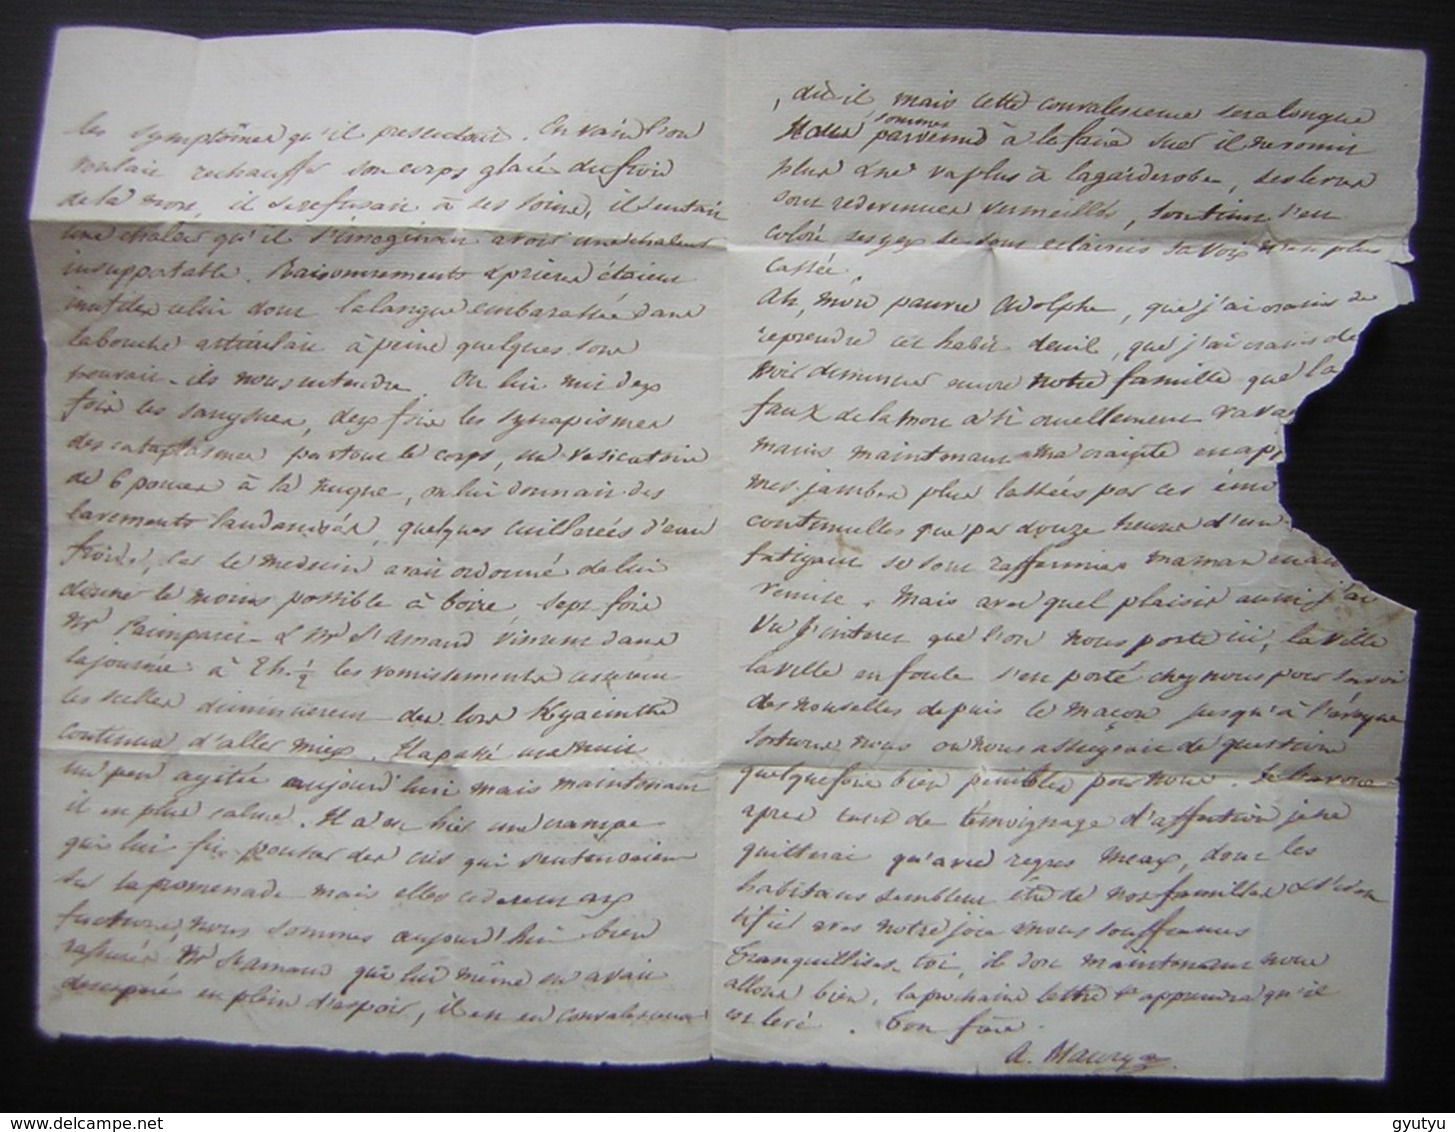 les symptômes qu'il presentait. En vain l'on
voulait rechauffer son corps glacé du froid
de la mort, il se refusait à ses soins, il sentait
une chaleur qu'il s'imaginait avoir une chaleur
insupportable. Raisonnements & prières étaient
inutiles celui dont la langue embarassée dans
la bouche articulait à peine quelques sons
pouvait-il nous entendre. On lui mit deux
fois les sangsues, deux fois les synapismes
des cataplasmes partout le corps, un vesicatoire
de 6 pouces à la nuque, on lui donnait des
lavements laudanisés, quelques cuillerées d'eau
froide, car le medecin avait ordonné de lui
donner le moins possible à boire, sept fois
Mr & Mr St Amand vinrent dans
la journée à 2h. ½ les vomissements cesserent
les selles diminuerent des lors Hyacinthe
continue d'aller mieux. Il a passé une nuit
un peu agitée aujourd'hui mais maintenant
il est plus calme. Il a eu hier une crampe
qui lui fit pousser des cris qui s'entendaient
sur la promenade mais elles cederent aux
frictions, nous sommes aujourd'hui bien
rassurés Mr St Amand qui lui même en avait
desesperé est plein d'espoir, il est en convalescence
, dit-il mais cette convalescence sera longue
Nous sommes parvenus à le faire suer il ne vomit
plus & ne va plus à la garderobe, ses levres
sont redevenues vermeilles, son teint s'est
coloré ses yeux se sont eclaircis sa voix n'est plus
cassée.
Ah, mon pauvre Adolphe, que j'ai craint de
reprendre cet habit deuil, que j'ai craint de
voir diminuer encore notre famille que la
faux de la mort a si cruellement
mais maintenant ma crainte
mes jambes plus lassées par ces émo
continuelles que par douze heures d'un
fatigant se sont raffermies maman
remise. Mais avec quel plaisir aussi j'ai
vu l'interet que l'on nous porte ici, la ville
la ville en foule s'est porté chez nous pour savoir
des nouvelles depuis le maçon jusqu'à l'évêque
sortions nous on nous assiegeait de question
quelquefois bien penibles pour nous. Je l'avoue
apres tant de témoignage d'affection je ne
quitterai qu'avec regret Meaux, dont les
habitans semblent être de nos familles &
avec notre joie & nous souffrances
Tranquillises-toi, il dort maintenant nous
allons bien, la prochaine lettre t'apprendra qu'il
est levé. Ton frère.
A. Maury
gyutyu
delcampe.net